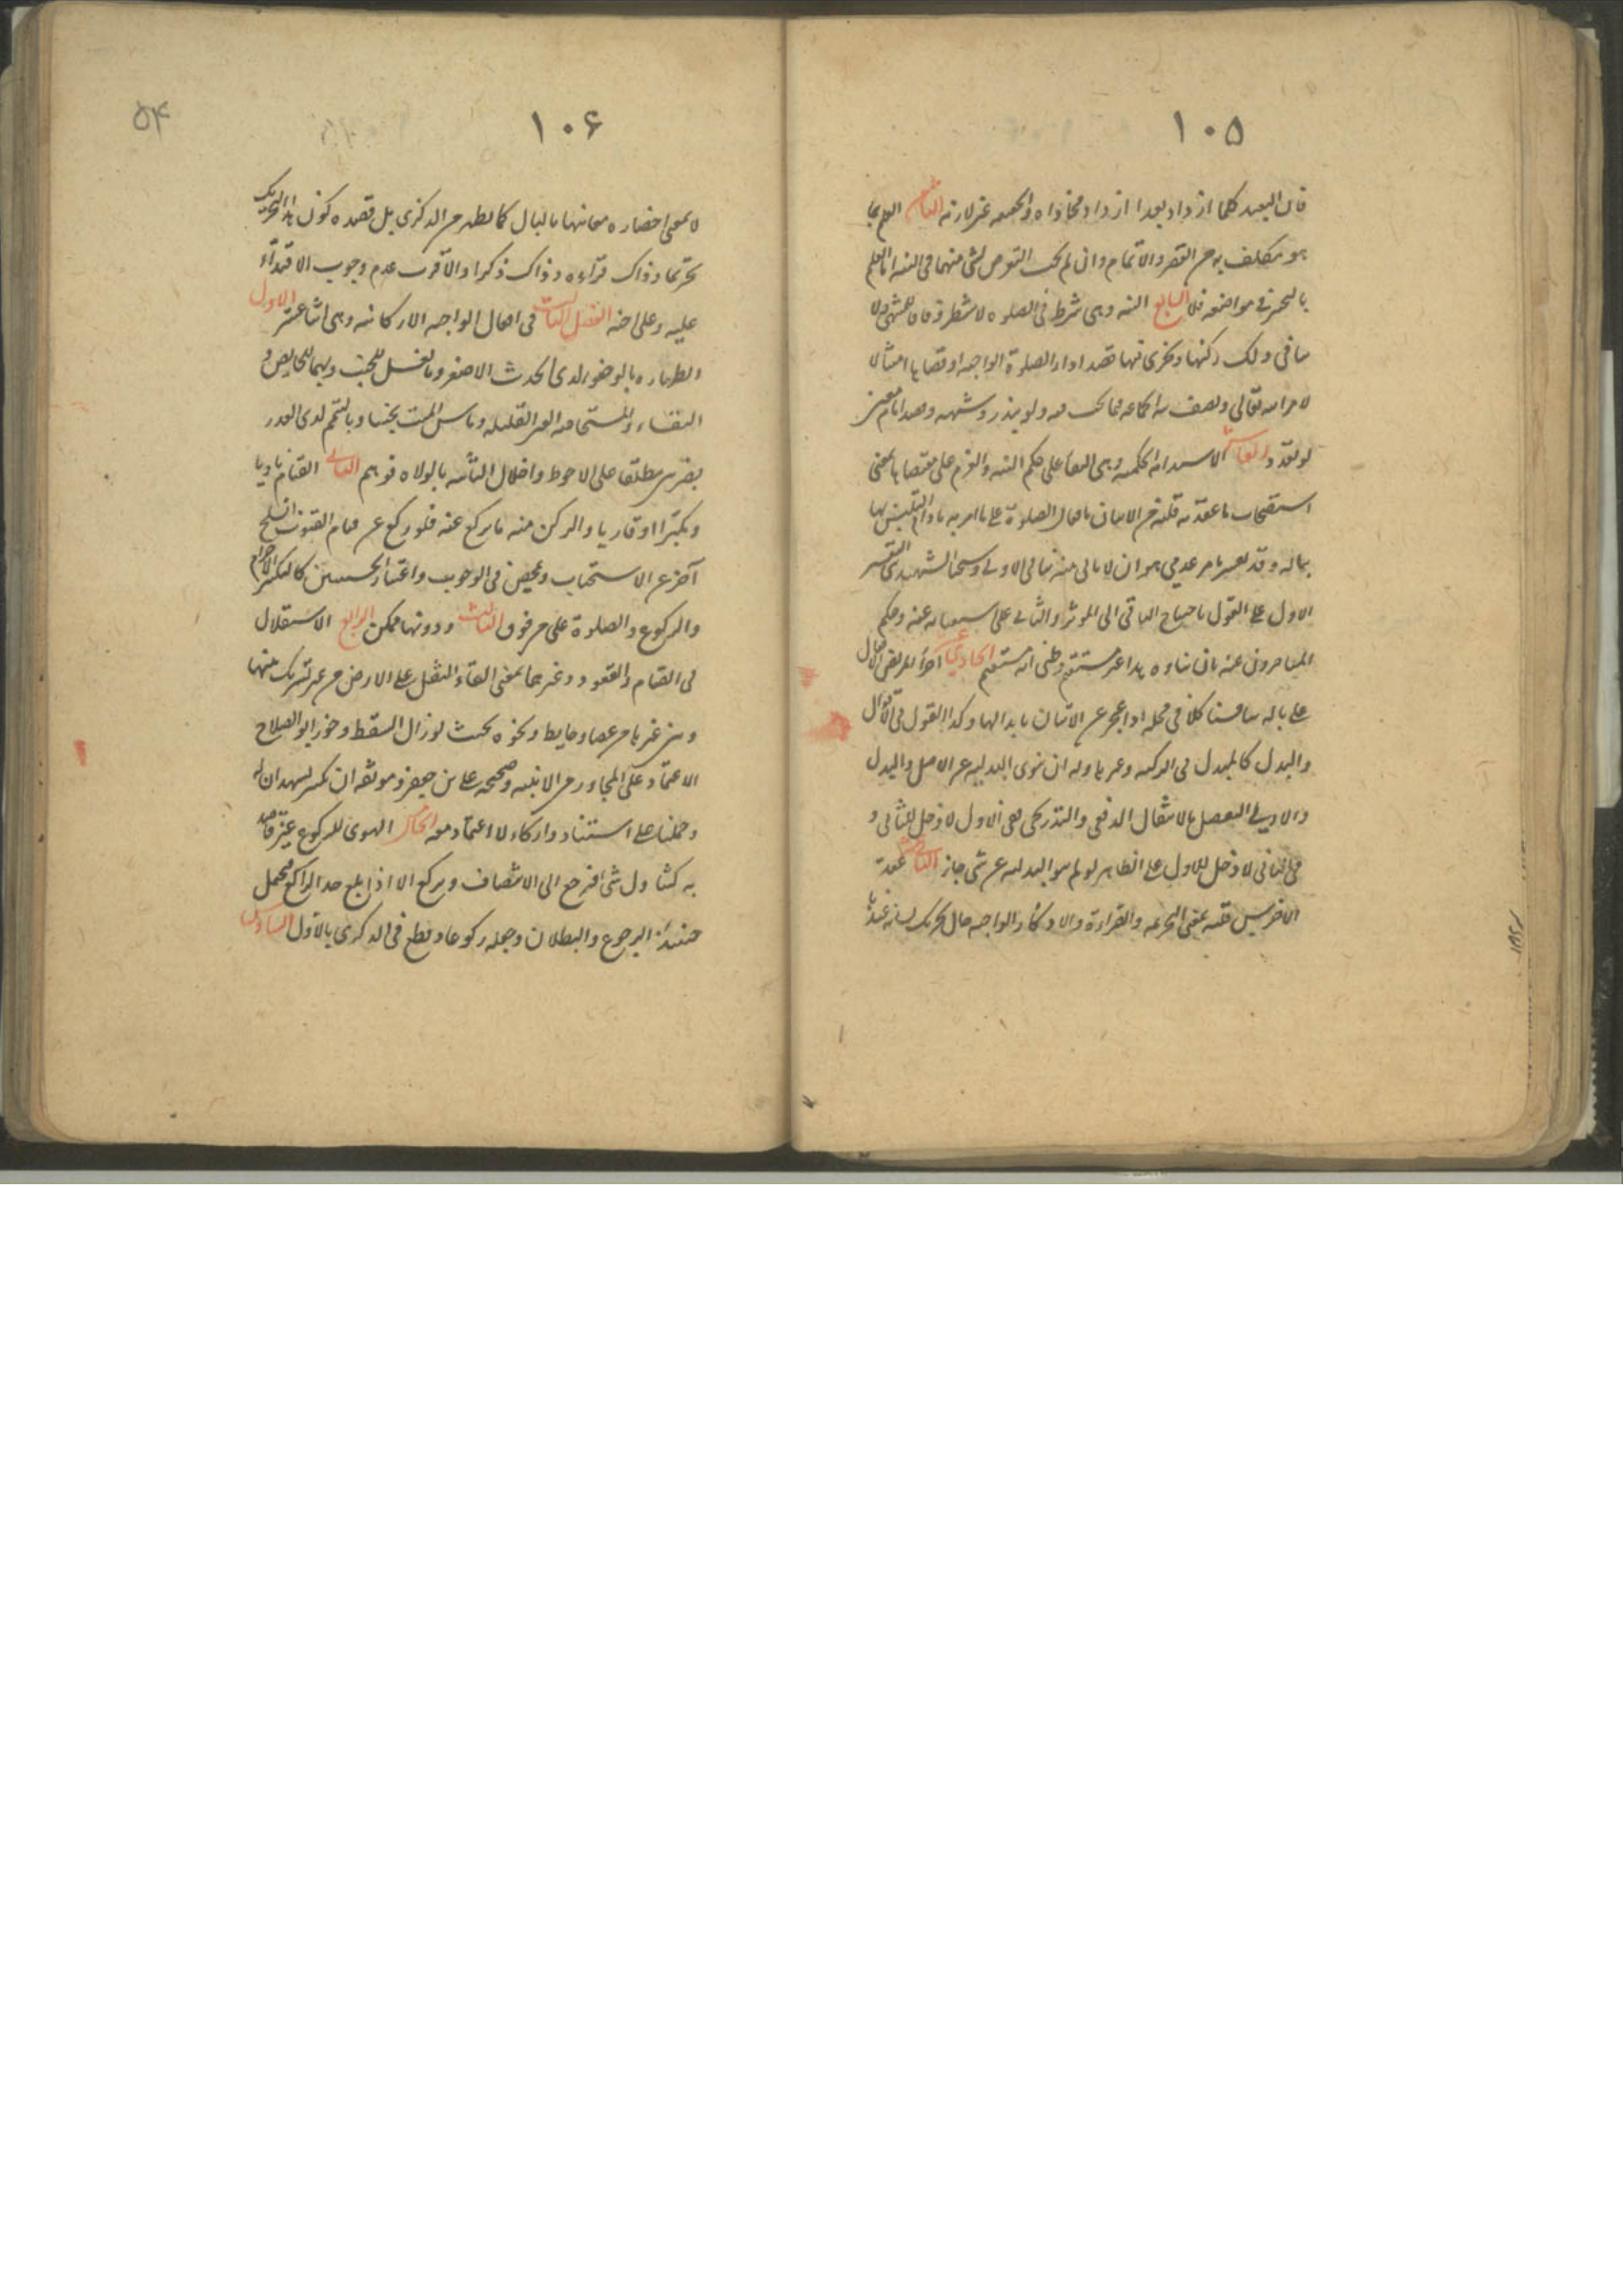 ١٠٥
فان البعيد كلما ازداد بعدا ازداد محاذاه والجهه غير لازمه الثامن العلم بما
هو مكلف به من القصر والاتمام وان لم يجب التعرض لشى منهما فى النيه اما العلم
بالتخير فى مواضعه فلا التاسع النيه وهى شرط فى الصلوه لا شطر وفاقا للمنتهى ولا
ينافى ذلك ركنيتها ويجزى فيها قصد اداء الصلوة الواجبه او قضائها امتثالا
لامر الله تعالى
لو تعدد العاشر الاستدامه الحكميه وهى البقاء على حكم النيه والعزم على مقتضاها بمعنى
استصحاب ما عقد به قلبه من الاتيان بافعال الصلوة على ما امر به ما دام التلبس بها
بباله وقد تفسر بامر عدمى هو ان لا ياتى بنيه تنافى الاولى وشيخنا الشهيد بنى التفسير
الاول على القول باحتياج الباقى الى الموثر والثانى على استغنائه عنه وحكم
المتاخرون عنه بان بناءه هذا غير مستقيم وظنى انه مستقيم الحادى عشر اجراء المريض الافعال
على باله كلا فى محله اذا عجز عن الاتيان بابدالها وكذا القول فى الاقوال
والبدل كالمبدل فى الركنيه وغيرها وله ان ينوى البدليه عن الاصل والبدل
والاولى التفصيل بالانتقال الدفعى والتدريجى ففى الاول لا دخل للثانى و
فى الثانى لا دخل للاول على الظاهر لو لم ينو البدليه عن شى جاز الثانى عشر عقد
الاخرس قلبه بمعنى التحريمه والقراءة والاذكار الواجبه حال تحريك لسانه عندها
١٠۶
۵۴
لا بمعنى احضاره معانيها بالبال كما يظهر من الذكرى بل قصده كون هذا التحريك
تحريما وذاك قراءه وذاك ذكرا والاقرب عدم وجوب الاقتداء
عليه وعلى اخيه الفصل الثالث فى افعال الواجبه الاركانيه وهى اثنا عشر الاول
الطهاره بالوضوء لدى الحدث الاصغر وبالغسل للجنب وبهما للحايض و
النفساء والمستحاضه الغير القليله وماس الميت نجسا وبالتيمم لدى العذر
بضربتين مطلقا على الاحوط واخلال الناسيه بالولاء فوهم الثانى القيام ناويا
ومكبرا او قاريا والركن منه ما يركع عنه فلو ركع عن قيام القنوت انسلخ
آخره عن الاستحباب وتمحض فى الوجوب واعتبار الحيثيتين كالتكبير الاحرام
والركوع والصلوة على من فوق الثالث ودونها ممكن الرابع الاستقلال
فى القيام والقعود وغيرهما بمعنى القاء الثقل على الارض من غير تشريك بينها
وبين غيرها من عصا وحايط ونحوه بحيث لو زال السقط وجوز ابو الصلاح
الاعتماد على المجاور من الابنيه وصحيحه على بن جعفر وموثقه ابن بكير يشهدان له
وحملنا على استناد واتكاء لا اعتماد معه الخامس الهوى للركوع غير قاصد
به كتناول شى فيرجع الى الانتصاف ويركع الا اذا بلغ حد الراكع فيحتمل
حينئذ الرجوع والبطلان وجعله ركوعا وقطع فى الذكرى بالاول السادس